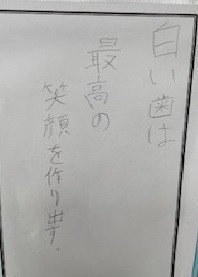 白い歯は
最高の
笑顔を作り出す。